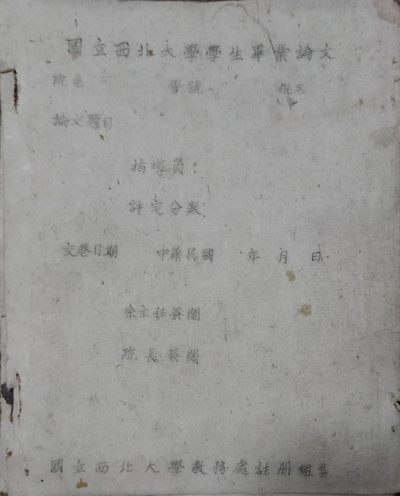 國立西北大學學生畢業論文
院系 學號 姓名
論文題目
指導員
評定分數
文卷日期 中華民國 年 月 日
系主任簽閱
院長簽閱
國立西北大學教務處註册組製